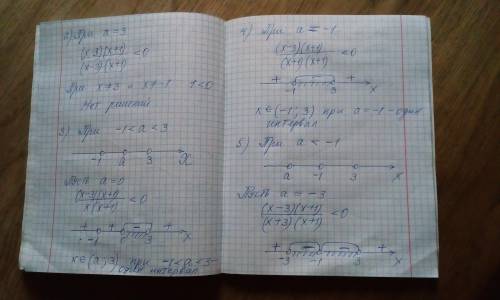 2) При a = 3
(x-3)(x+1)
/(x-3)(x+1) < 0
При x≠3 и x≠-1 1<0
Нет решений
3) При -1 < a < 3
-1 a 3 X
Пусть a=0
(x-3)(x+1)
/x(x+1) < 0
+ + - +
-1 3 x
x∈(a;3) при -1<a<3-
один интервал
4) При a = -1
(x-3)(x+1)
/(x+1)(x+1) < 0
+ - +
-1 3 x
x∈(-1; 3) при a=-1 - один
интервал
5) При a < -1
a -1 3 x
Пусть a = -3
(x-3)(x+1)
/(x+3)(x+1) < 0
+ - - +
-3 -1 3 x